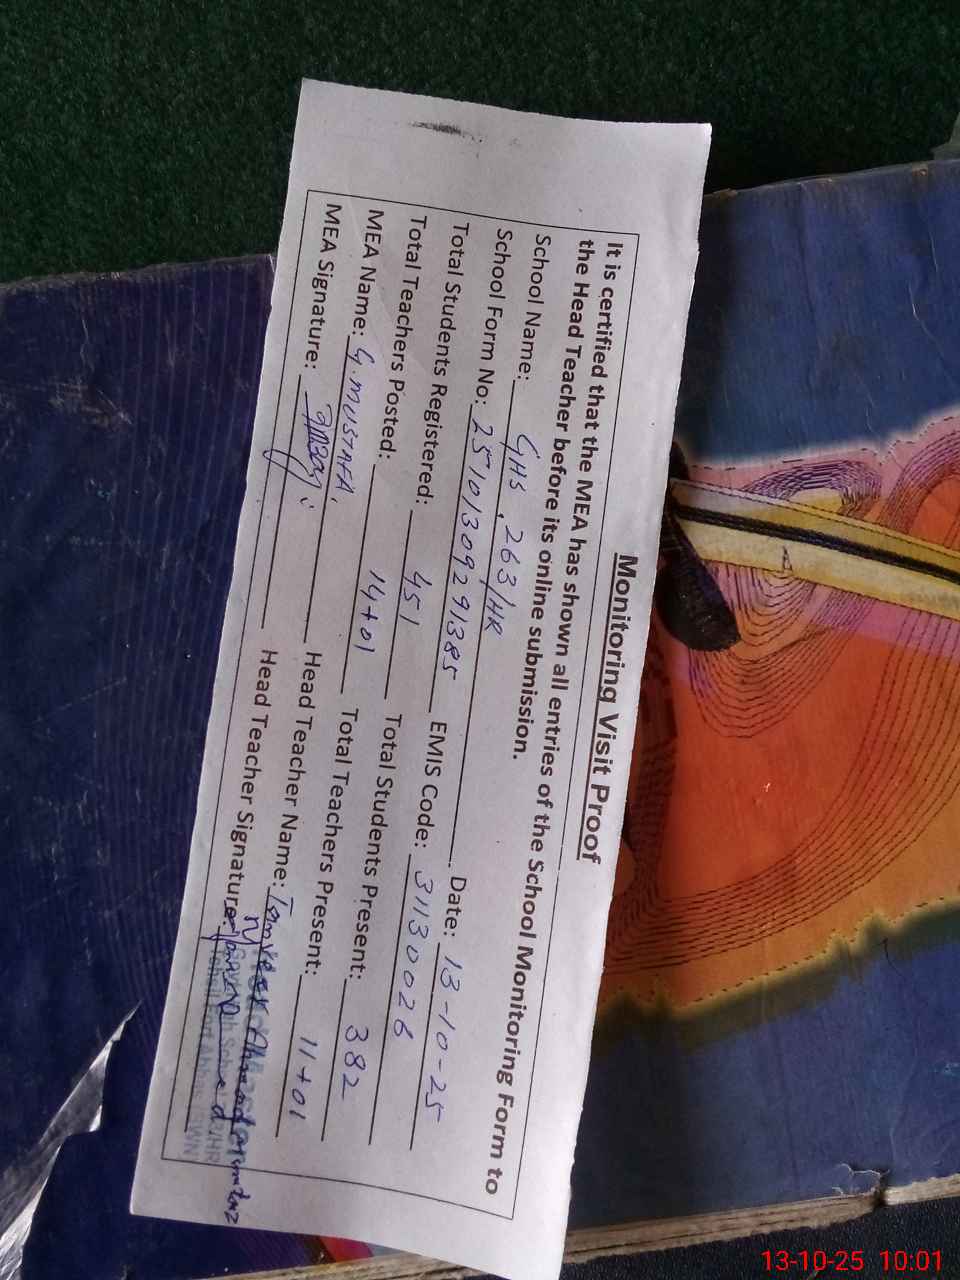 Monitoring Visit Proof
It is certified that the MEA has shown all entries of the School Monitoring Form to
the Head Teacher before its online submission.
School Name: GHS, 263/HR Date: 13-10-25
School Form No: 25101309291385 EMIS Code: 31130028
Total Students Registered: 451 Total Students Present: 382
Total Teachers Posted: 14+01 Total Teachers Present: 11+01
MEA Name: G. MUSTAFA Head Teacher Name: Tanveer Ahmad
MEA Signature: Head Teacher Signature:
13-10-25 10:01